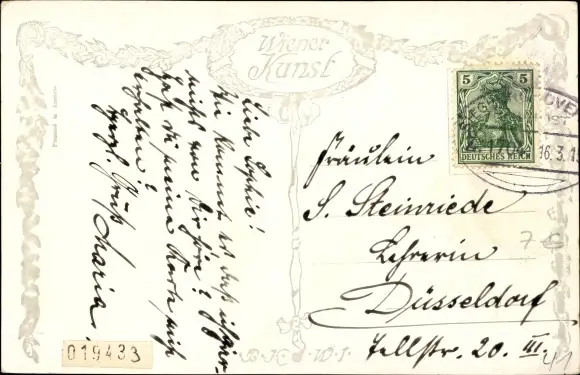 Wiener
Kunst
Liebe Sophie!
Wie kommt es daß ich gar
nichts von Dir höre?
hast du meine Karte nicht
erhalten?
Herzl. Gruß
Maria.
Fräulein
S. Steinriede
Lehrerin
Düsseldorf
Tellstr. 20. III.
5 5
DEUTSCHES REICH
16.3.1
019433
B.K.W.I.